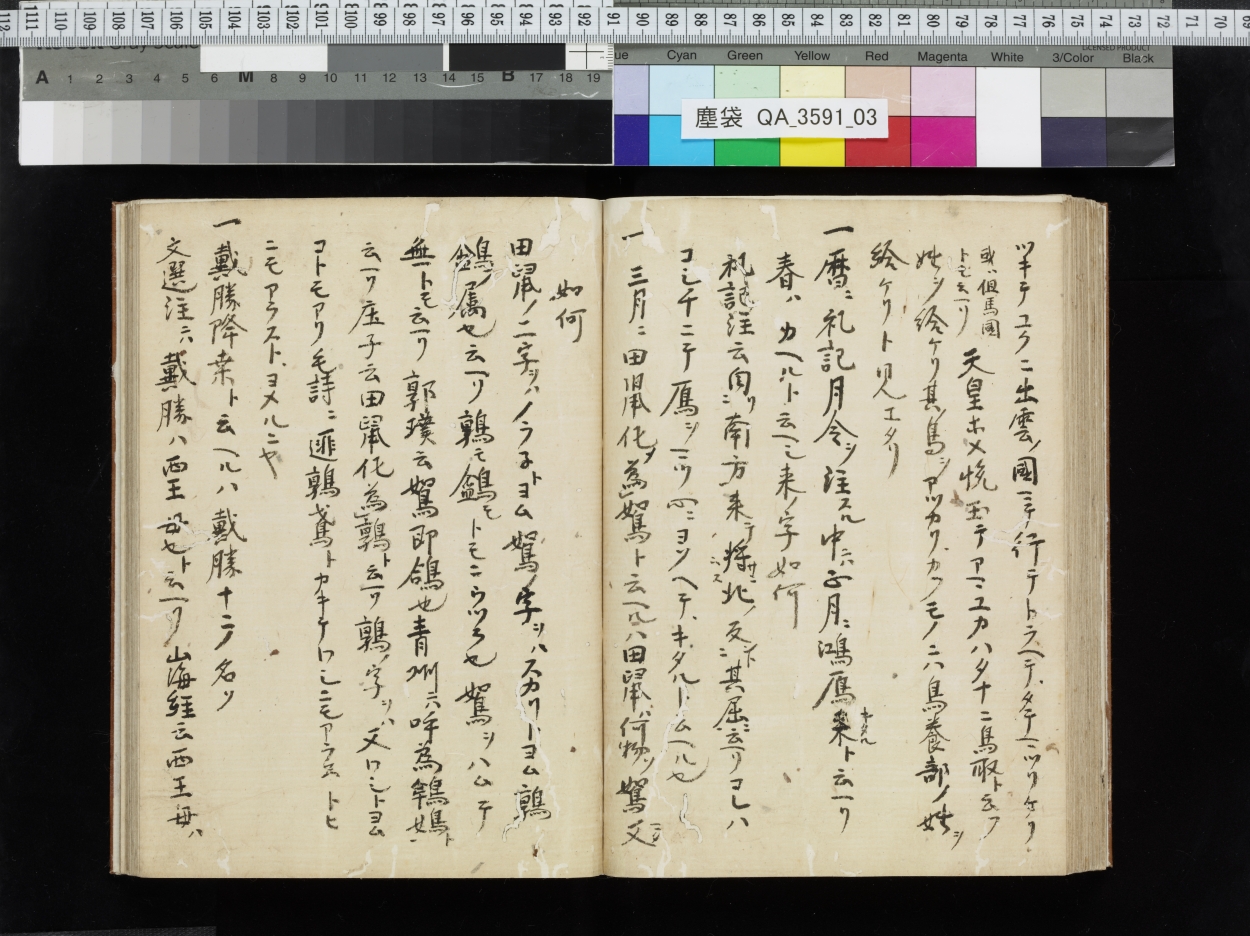 塵袋 QA_3591_03
Cyan Green Yellow Red Magenta White 3/Color Black
LICENSED PRODUCT
A 1 2 3 4 5 6 M 8 9 10 11 12 13 14 15 B 17 18 19
ツキテユクニ出雲ノ國ニテ行テトラヘテタテマツリケリ
或ハ但馬國
トモ云ヘリ
天皇ホメ悦玉テアマユカハタナニ鳥取ト云フ
姓ヲ給ケリ其ノ鳥ヲアツカリカフモノニハ鳥養部ノ姓ヲ
給ケリト見エタリ
一暦ニ礼記月令ヲ注スル中ニ正月ニ鴻鴈来ト云ヘリ
キタル
春ハカヘルト云ヘシ来ノ字如何
礼記注云自南方来テ将北ノ反ニ其居ニ云ヘリコレハ
コシチニテ鴈ヲマツ心ニヨソヘテキタルト云ヘル也
一三月ニ田鼠化為鴽ト云ヘルハ田鼠ハ何物ソ鴽又
如何
田鼠ノ二字ヲハノラネトヨム鴽ノ字ヲハスカリトヨム鶉
鷂ノ属也云ヘリ鶉モ鷂モトモニウツラ也鴽ヲハムテ
無トモ云ヘリ郭璞云鴽即鴿也青州ニ呼為鴾母ト
云ヘリ庄子云田鼠化為鶉ト云ヘリ鶉ノ字ヲハ又ワシトヨム
コトモアリ毛詩ニ匪鶉匪鳶トカキテワシニモアラストヒ
ニモアラストヨメルニヤ
一戴勝降桒ト云ヘルハ戴勝ナニノ名ソ
文選注ニハ戴勝ハ西王母也ト云ヘリ山海経云西王母ハ